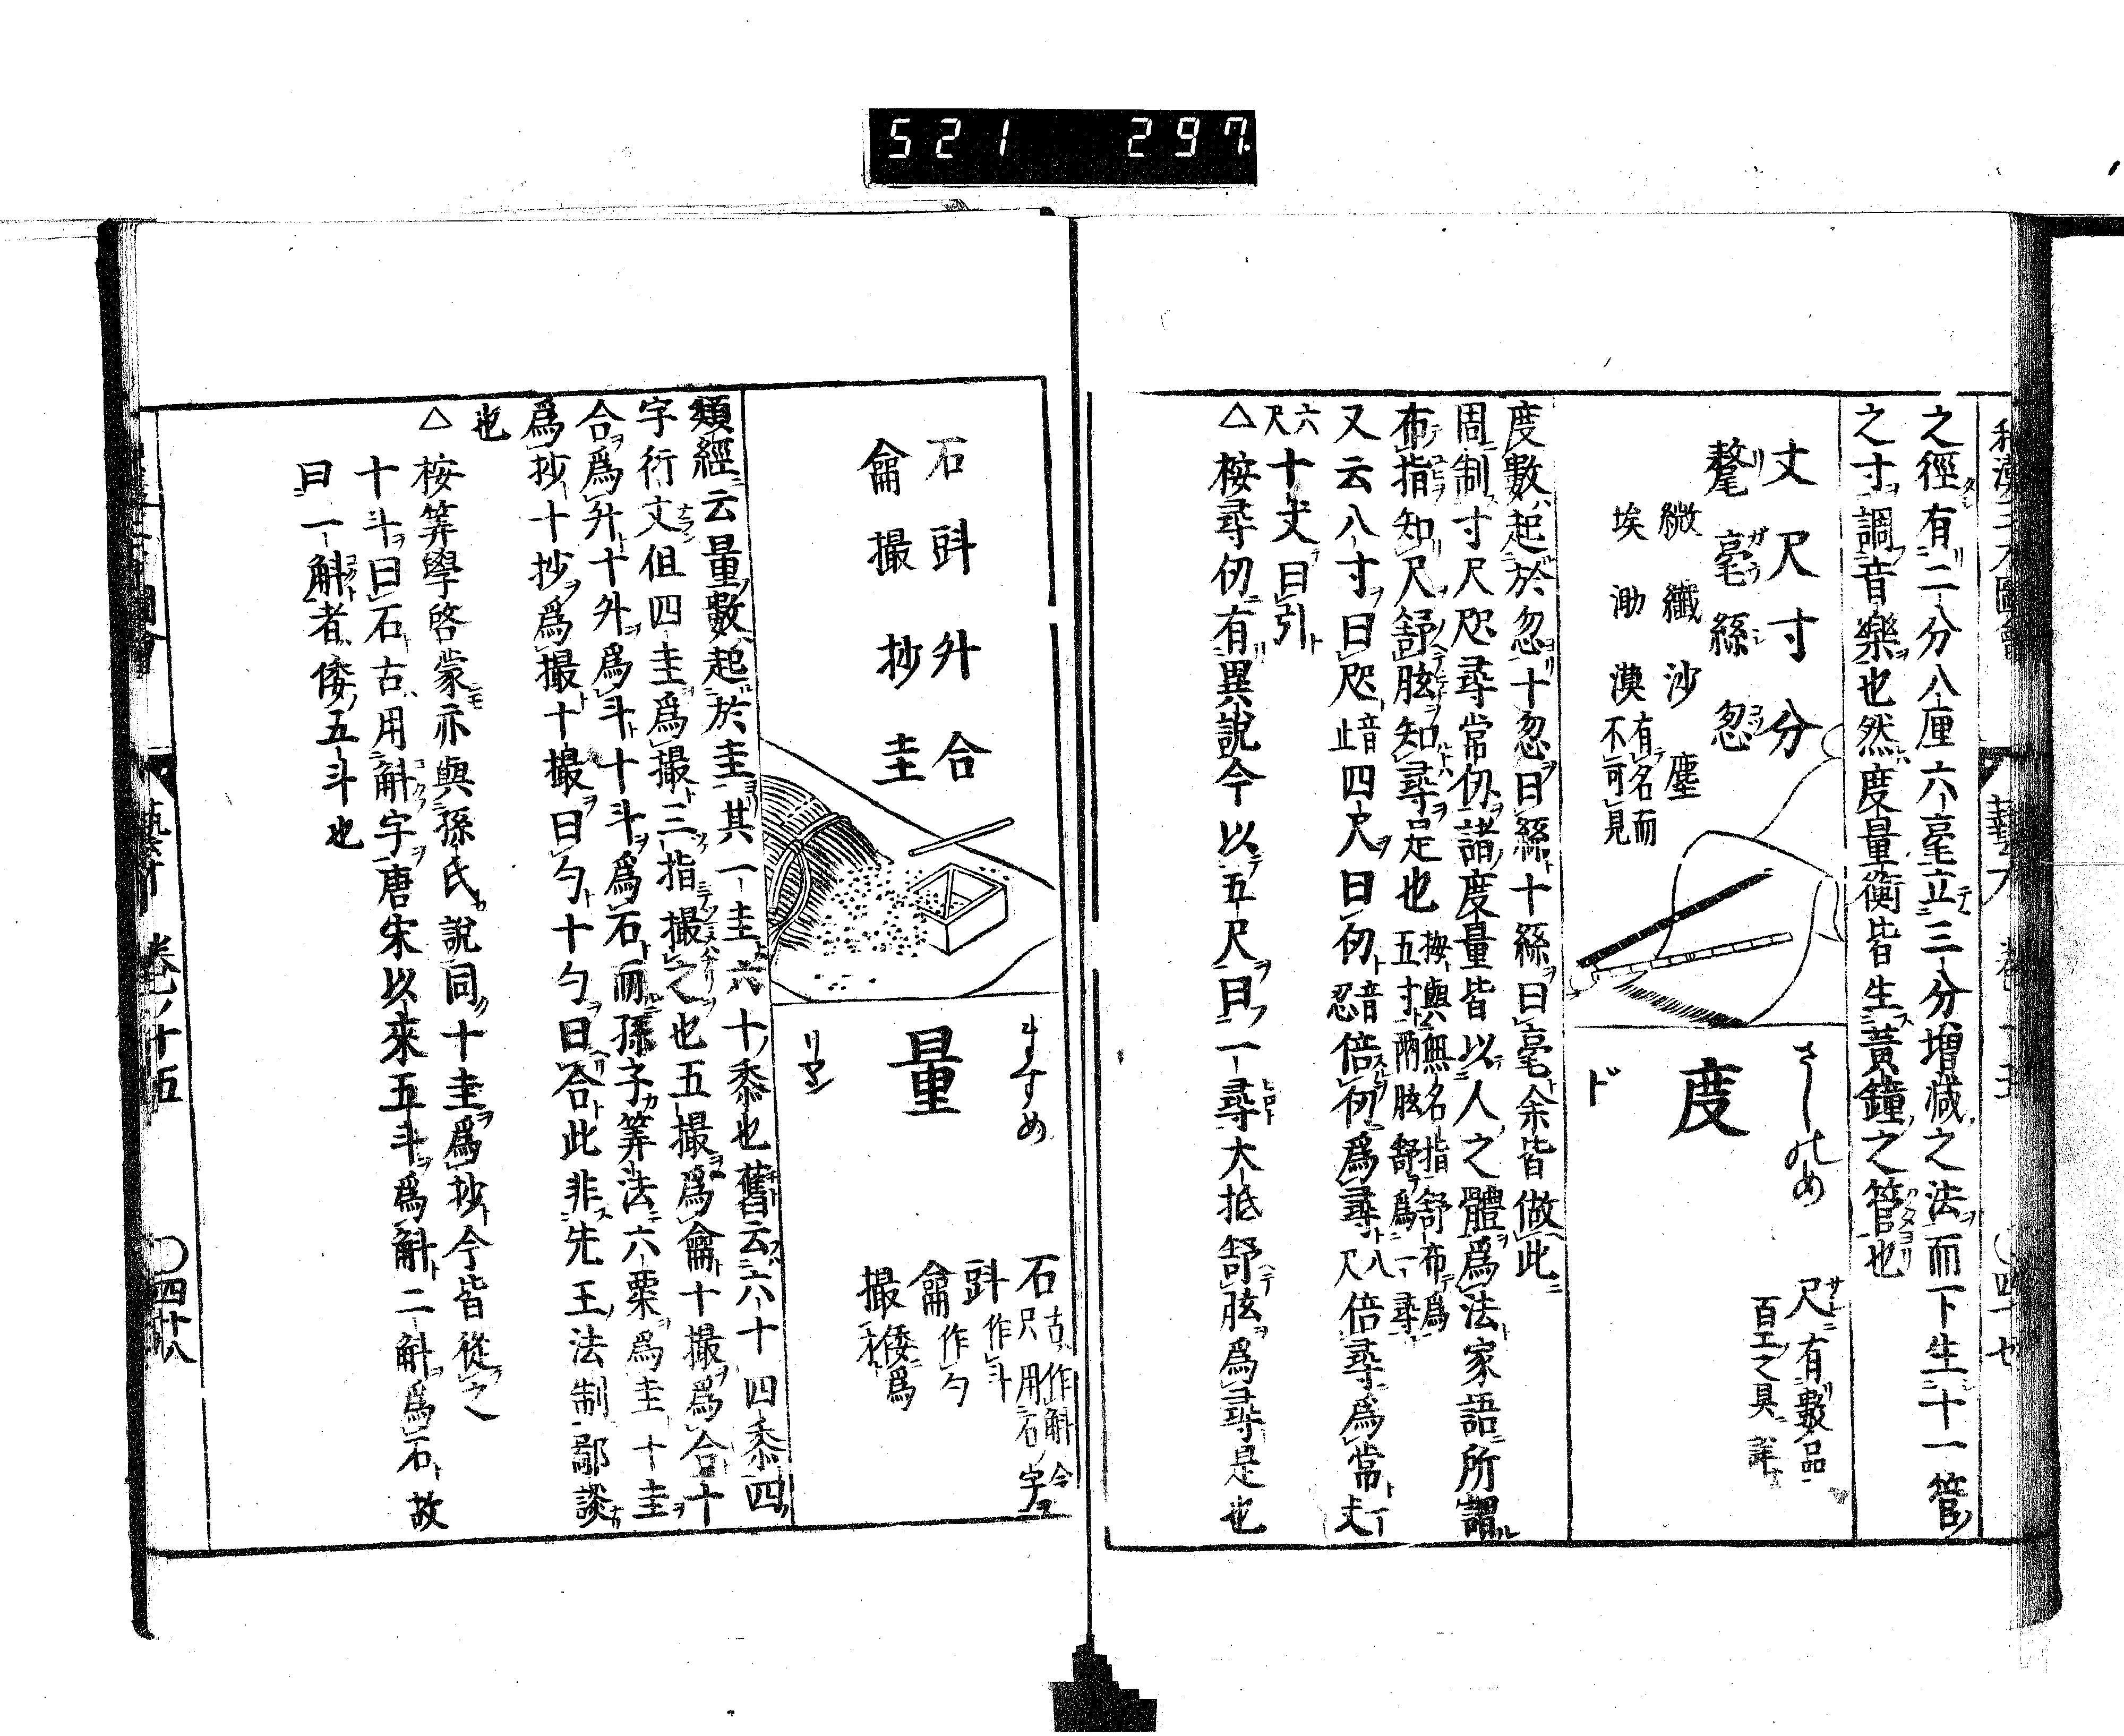 521 297.
之徑有二分八厘六毫立三分增減之法而下生十一管
之寸調音樂也然度量衡皆生黃鐘之管也
さしのめ
度
ド
尺有數品
百工之具詳
丈尺寸分
氂毫絲忽
微纖沙塵
埃渺漠有名而不可見
度數起於忽十忽曰絲十絲曰毫余皆做此
周制寸尺咫尋常仞諸度量皆以人之體爲法家語所謂
布指知尺舒肱知尋是也按與無名指舒布爲五寸兩肱舒爲一尋
又云八寸曰咫音止四尺曰仞音忍倍仞爲尋八尺倍尋爲常一丈
六尺十丈曰引
△按尋仞有異說今以五尺曰一尋大抵舒肱爲尋是也
ますめ
量
リヤン
石古作斛今只用石字
㪷作斗
龠作勺
撮倭爲才
石㪷升合
龠撮抄圭
類經云量數起於圭其一圭六十黍也舊云六十四黍四
字衍文但四圭爲撮三指撮之也五撮爲龠十撮爲合十
合爲升十升爲斗十斗爲石而孫子筭法六粟爲圭十圭
爲抄十抄爲撮十撮曰勺十勺曰合此非先王法制鄙談
也
△按筭學啓蒙亦與孫氏說同十圭爲抄今皆從之
十斗曰石古用斛字唐宋以來五斗爲斛二斛爲石故
曰一斛者倭五斗也
卷ノ十五
〇四十八